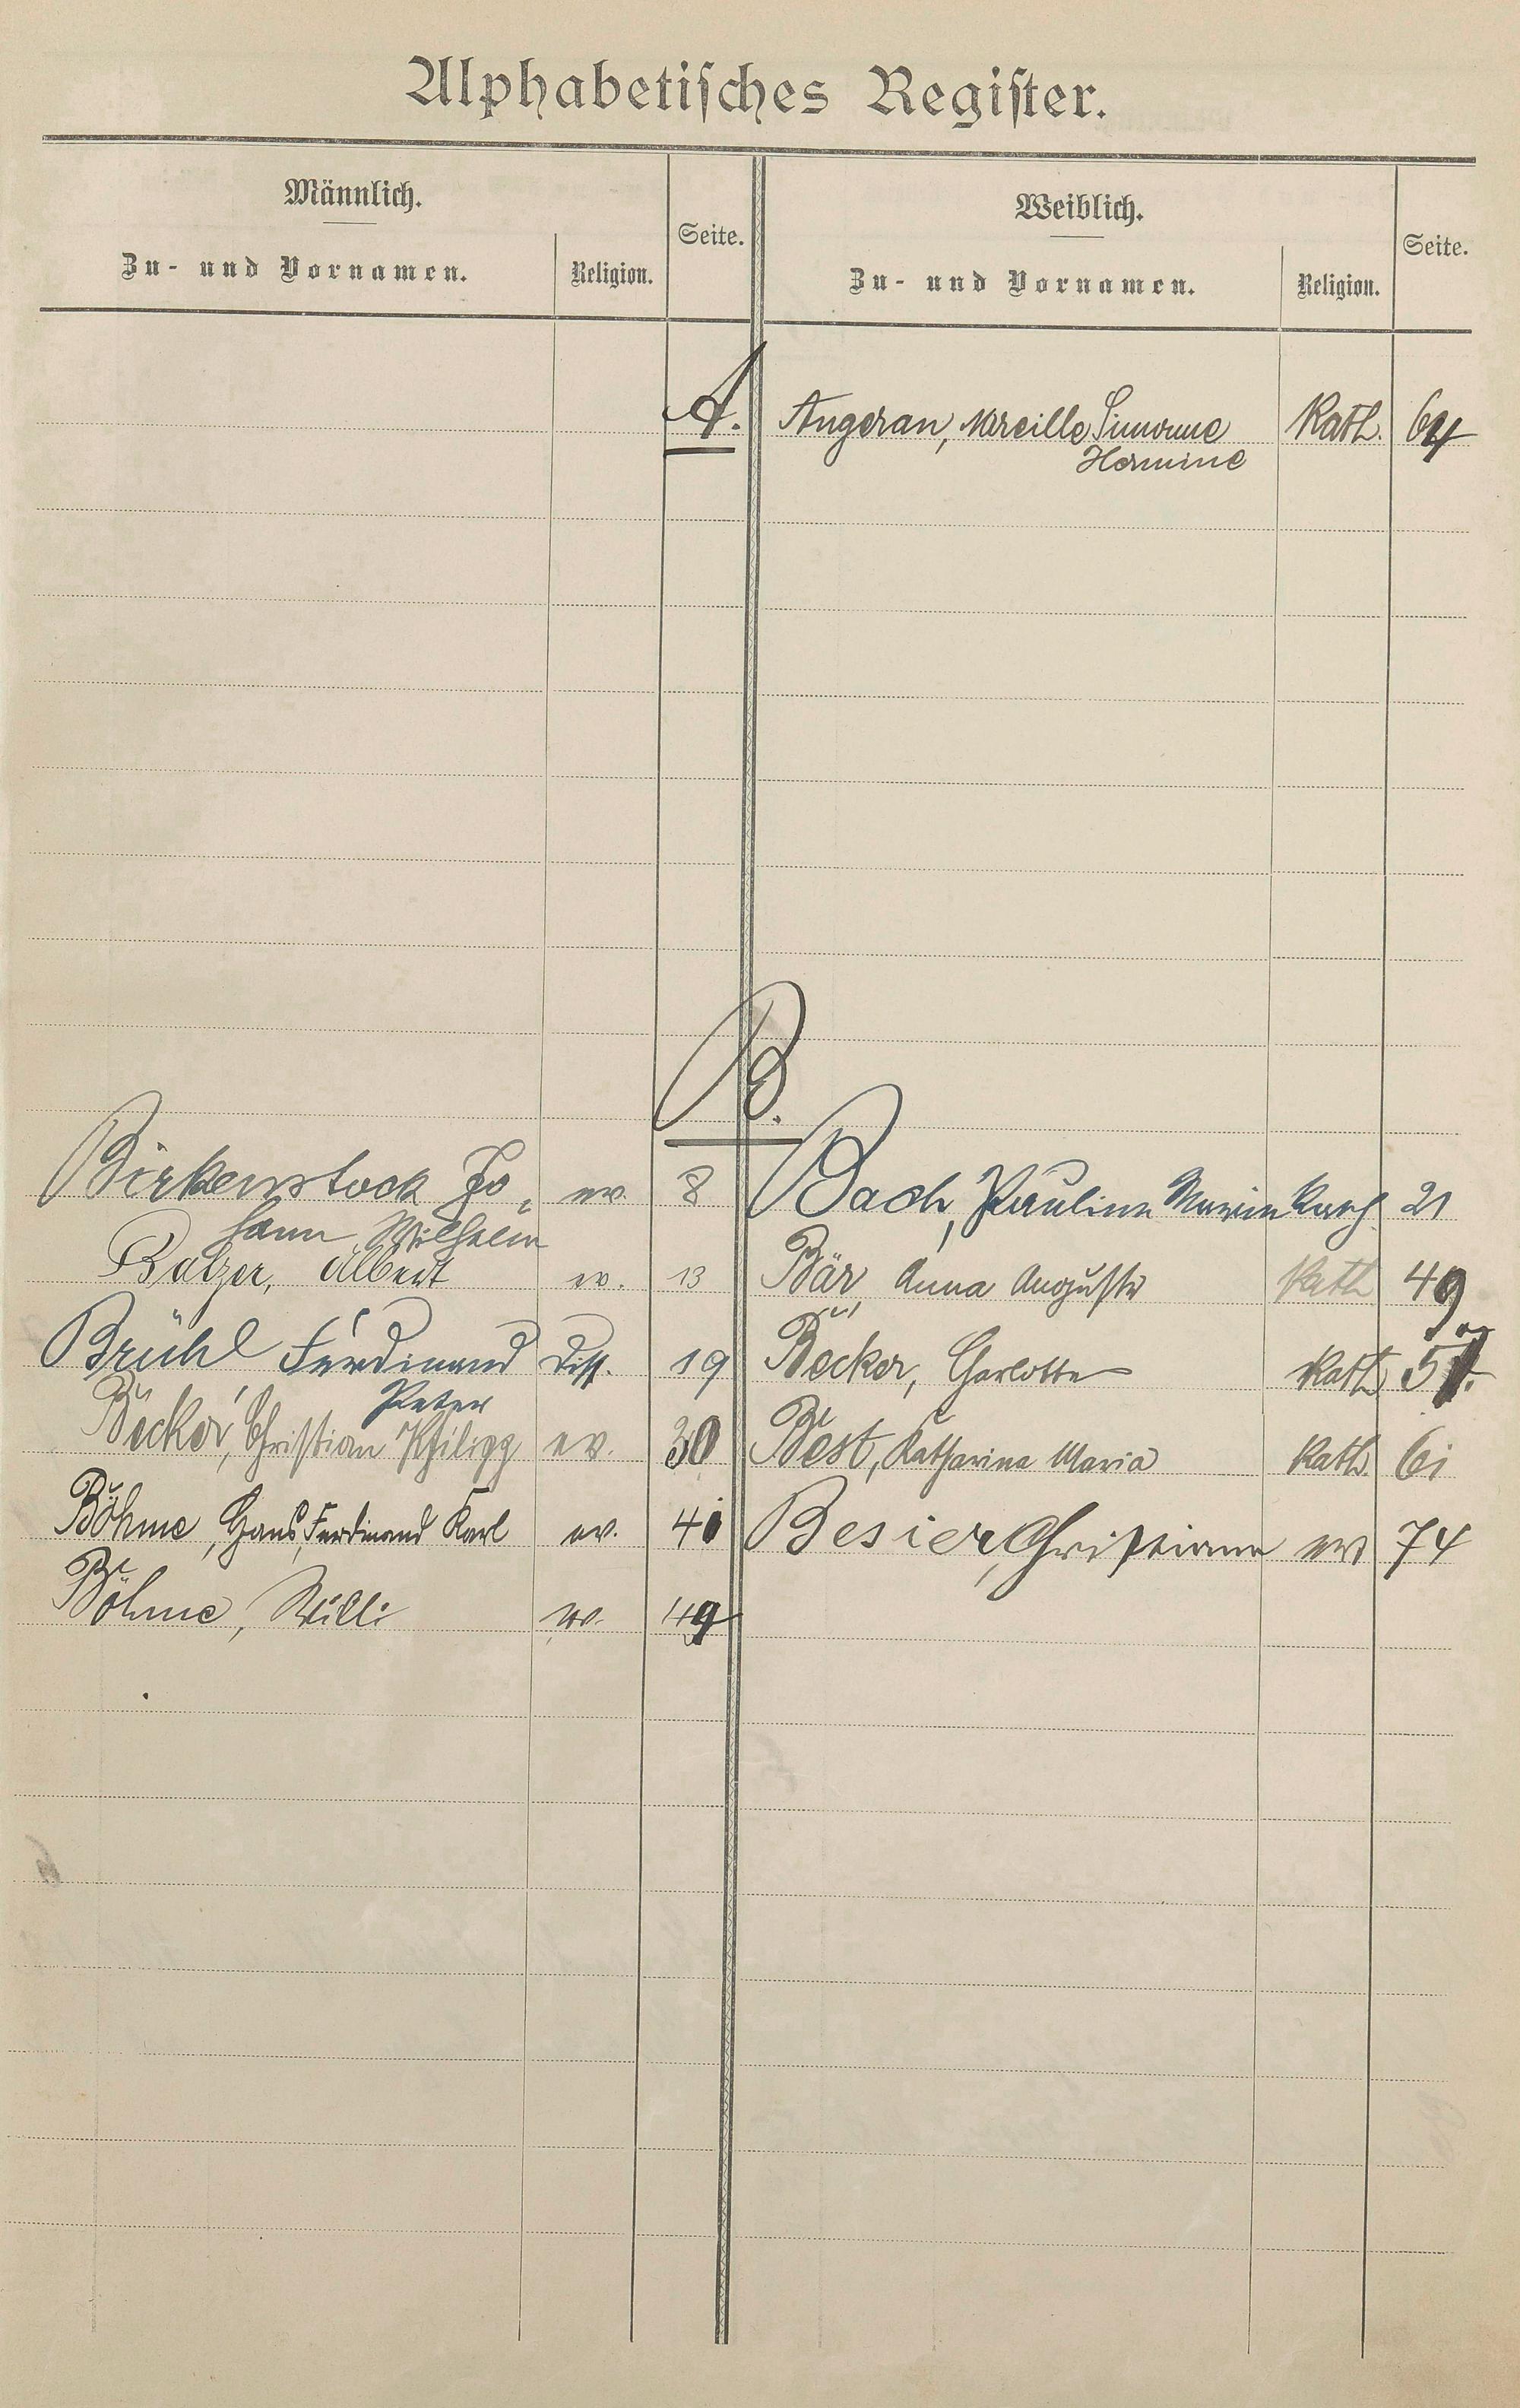 Alphabetisches Register.
Männlich.
Zu- und Vornamen.
Religion.
Seite.
Weiblich.
Zu- und Vornamen.
Religion.
Seite.
A.
Angeran, Mireille Simonne Kath. 64
Hermine
B.
Birkenstock Jo- ev. 8
hann Wilhelm
Balzer, Albert ev. 13
Brühl Ferdinand Diss. 19
Peter
Becker, Christian Philipp ev. 30
Böhme, Hans, Ferdinand Karl ev. 41
Böhme, Willi ev. 49
Bach, Pauline Maria kath. 21
Bär, Anna Auguste Kath 49
Becker, Charlotte Kath 57.
Best, Katharina Maria Kath. 61
Besier, Christiane ev 74